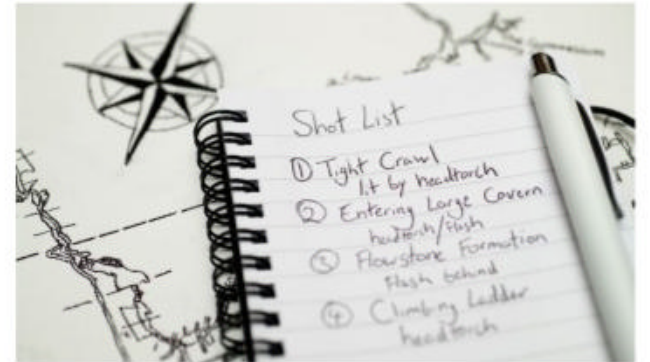 Shot List
① Tight Crawl
lit by headtorch
② Entering Large Cavern
headtorch/flash
③ Flowstone Formation
Flash behind
④ Climbing Ladder
headtorch